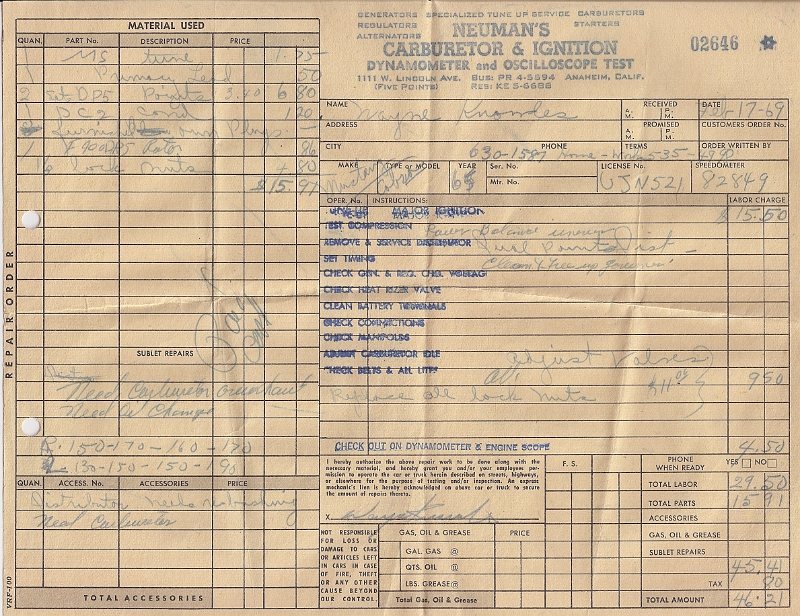 MATERIAL USED
QUAN. PART No. DESCRIPTION PRICE
1 MS tune 1.75
1 Primary Lead 50
2 Set DP5 Points 3.40 6 80
1 DC2 Cond 1 20
Plugs —
1 Rotor 86
16 lock nuts 4 80
$15.91
Paid
SUBLET REPAIRS
Need Carburetor overhaul
Need Oil Change
R. 150-170-160-170
L. 130-150-150-190
QUAN. ACCESS. No. ACCESSORIES PRICE
Distributor needs rebushing
Neat Carburetor
TOTAL ACCESSORIES
REPAIR ORDER
VRF-100
GENERATORS SPECIALIZED TUNE UP SERVICE CARBURETORS
REGULATORS STARTERS
ALTERNATORS
NEUMAN'S
CARBURETOR & IGNITION
DYNAMOMETER and OSCILLOSCOPE TEST
1111 W. LINCOLN AVE. BUS: PR 4-5594 ANAHEIM, CALIF.
(FIVE POINTS) RES: KE 5-6688
02646
NAME Wayne Knowles
RECEIVED A.M. P.M.
DATE Feb 17-69
ADDRESS
PROMISED A.M. P.M.
CUSTOMERS ORDER No.
CITY PHONE 630-1587 Home - Work 535-4990
TERMS
ORDER WRITTEN BY
MAKE Mustang TYPE OR MODEL Cobra YEAR 65
Ser. No.
Mtr. No.
LICENSE No. UJN521
SPEEDOMETER 82849
OPER. No. INSTRUCTIONS: LABOR CHARGE
TUNE-UP MAJOR IGNITION $15.50
TEST COMPRESSION Power Balance uneven
REMOVE & SERVICE DISTRIBUTOR Dual Points Dist —
SET TIMING Clean & free up
CHECK GEN. & REG. CHG. VOLTAGE
CHECK HEAT RIZER VALVE
CLEAN BATTERY TERMINALS
CHECK CONNECTIONS
CHECK MANIFOLDS
ADJUST CARBURETOR IDLE Adjust Valves
CHECK BELTS & ALL LITES
Replace all lock nuts $11.00 9 50
CHECK OUT ON DYNAMOMETER & ENGINE SCOPE 4.50
I hereby authorize the above repair work to be done along with the
necessary material, and hereby grant you and/or your employees per-
mission to operate the car or truck herein described on streets, highways,
or elsewhere for the purpose of testing and/or inspection. An express
mechanic's lien is hereby acknowledged on above car or truck to secure
the amount of repairs thereto.
X
F. S.
PHONE WHEN READY YES NO
TOTAL LABOR 29.50
TOTAL PARTS 15 91
ACCESSORIES
GAS, OIL & GREASE
SUBLET REPAIRS
45.41
TAX 80
TOTAL AMOUNT 46.21
NOT RESPONSIBLE
FOR LOSS OR
DAMAGE TO CARS
OR ARTICLES LEFT
IN CARS IN CASE
OF FIRE, THEFT
OR ANY OTHER
CAUSE BEYOND
OUR CONTROL.
GAS, OIL & GREASE PRICE
GAL. GAS @
QTS. OIL @
LBS. GREASE @
Total Gas, Oil & Grease